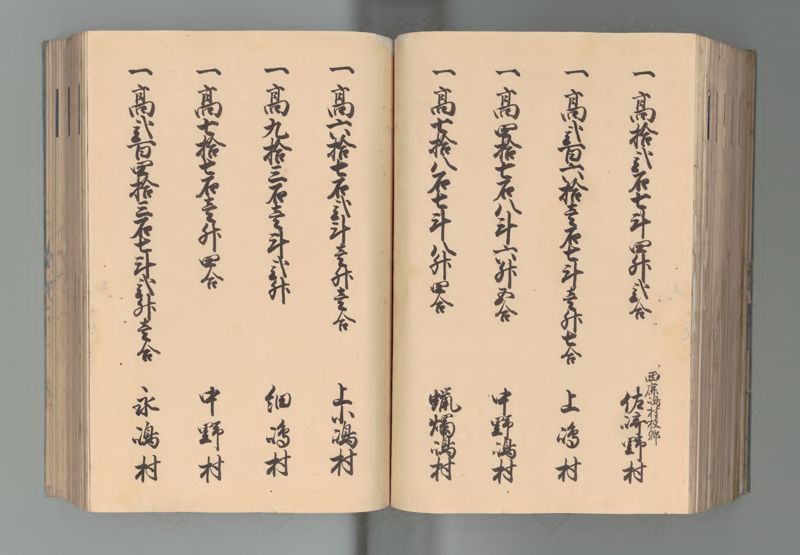 一高拾弐石七斗四升弐合
西広嶋村枝郷
佐野村
一高弐百六拾壱石七斗壱升七合
上嶋村
一高四拾七石八斗六升五合
中野嶋村
一高七拾八石七斗八升四合
蝋燭嶋村
一高六拾七石弐斗壱升壱合
上小嶋村
一高九拾三石壱斗弐升
細嶋村
一高七拾七石壱升四合
中野村
一高弐百四拾三石七斗弐升壱合
永嶋村